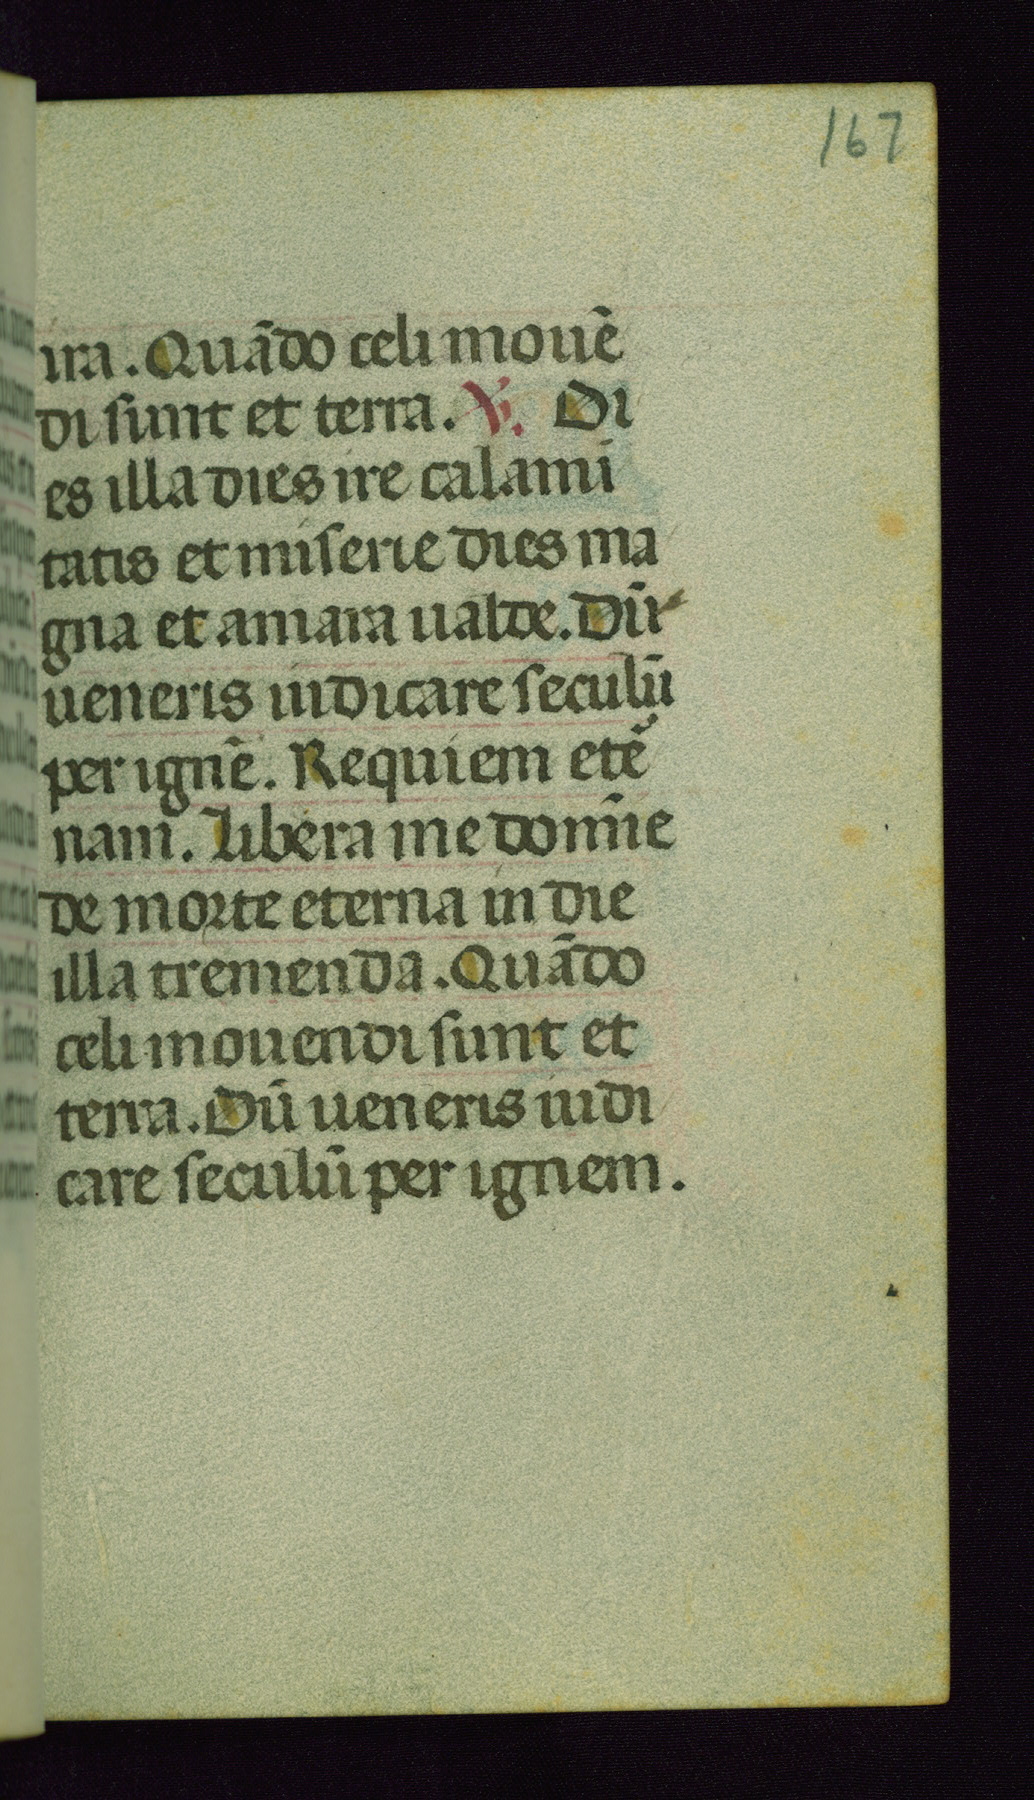 167
ira. Quãdo celi mouẽ
di sunt et terra. ℣. Di
es illa dies ire calami
tatis et miserie dies ma
gna et amara ualde. Dũ
ueneris iudicare seculũ
per ignẽ. Requiem etẽ
nam. Libera me domĩe
de morte eterna in die
illa tremenda. Quãdo
celi mouendi sunt et
terra. Dũ ueneris iudi
care seculũ per ignem.